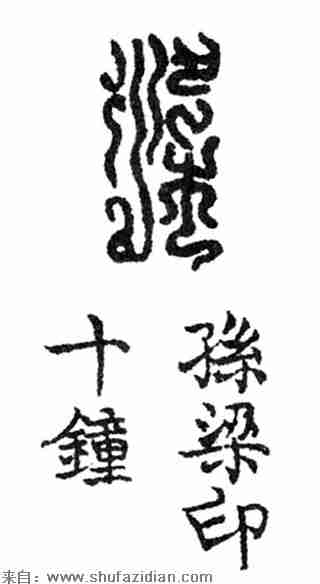 梁
孫梁印
十鐘
来自：www.shufazidian.com